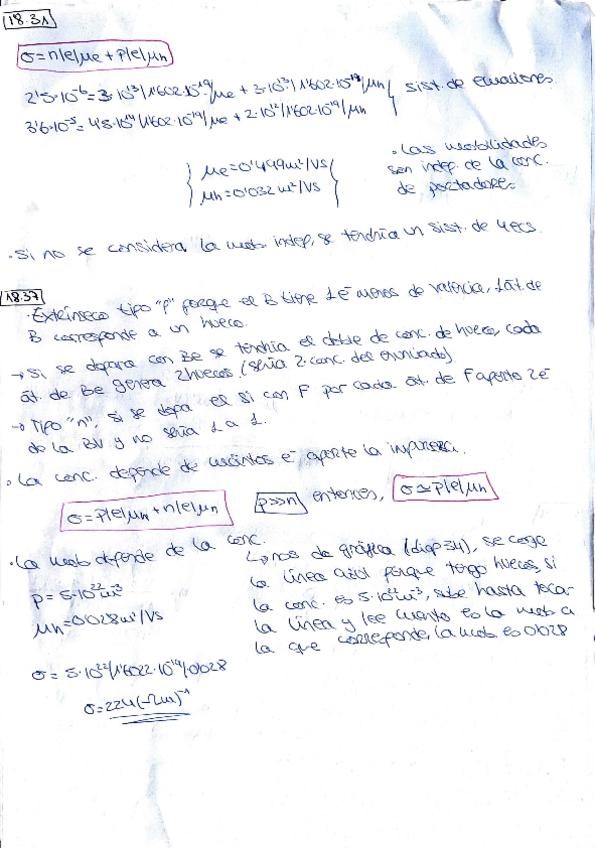 18.31
σ = n|e|μe + p|e|μh
2'5·10⁻⁶ = 3·10¹³|1'602·10⁻¹⁹|μe + 3·10¹³|1'602·10⁻¹⁹|μh } sist. de ecuaciones
3'6·10⁻⁵ = 4'5·10¹⁴|1'602·10⁻¹⁹|μe + 2·10¹²|1'602·10⁻¹⁹|μh
{ μe = 0'499 m²/VS
μh = 0'032 m²/VS }
· Las mobilidades
sen indep. de la conc.
de portadores.
· Si no se considera la mob. indep, se tendría un sist. de 4 ecs.
18.37
· Extrínseco tipo "p" porque el B tiene 1 e⁻ menos de valencia, 1 át. de
B corresponde a un hueco.
→ Si se dopara con Be se tendría el doble de conc. de huecos, cada
át. de Be genera 2 huecos (sería 2·conc. del enunciado)
→ Tipo "n", si se dopa el si con P por cada át. de P aporto 2 e⁻
de la BV y no sería 1 a 1.
· La conc. depende de cuántos e⁻ aporte la impureza.
σ = p|e|μh + n|e|μn p>>n entonces, σ ≃ p|e|μh
· La mob depende de la conc.
↳ nos da gráfica (diap 34), se coge
la línea azul porque tengo huecos, si
la conc. es 5·10²² m⁻³, sube hasta tocar
la línea y lee cuánto es la mob a
la que corresponde, la mob es 0'028
p = 5·10²² m⁻³
μh = 0'028 m²/VS
σ = 5·10²²|1'6022·10⁻¹⁹|0'028
σ = 224 (Ωm)⁻¹